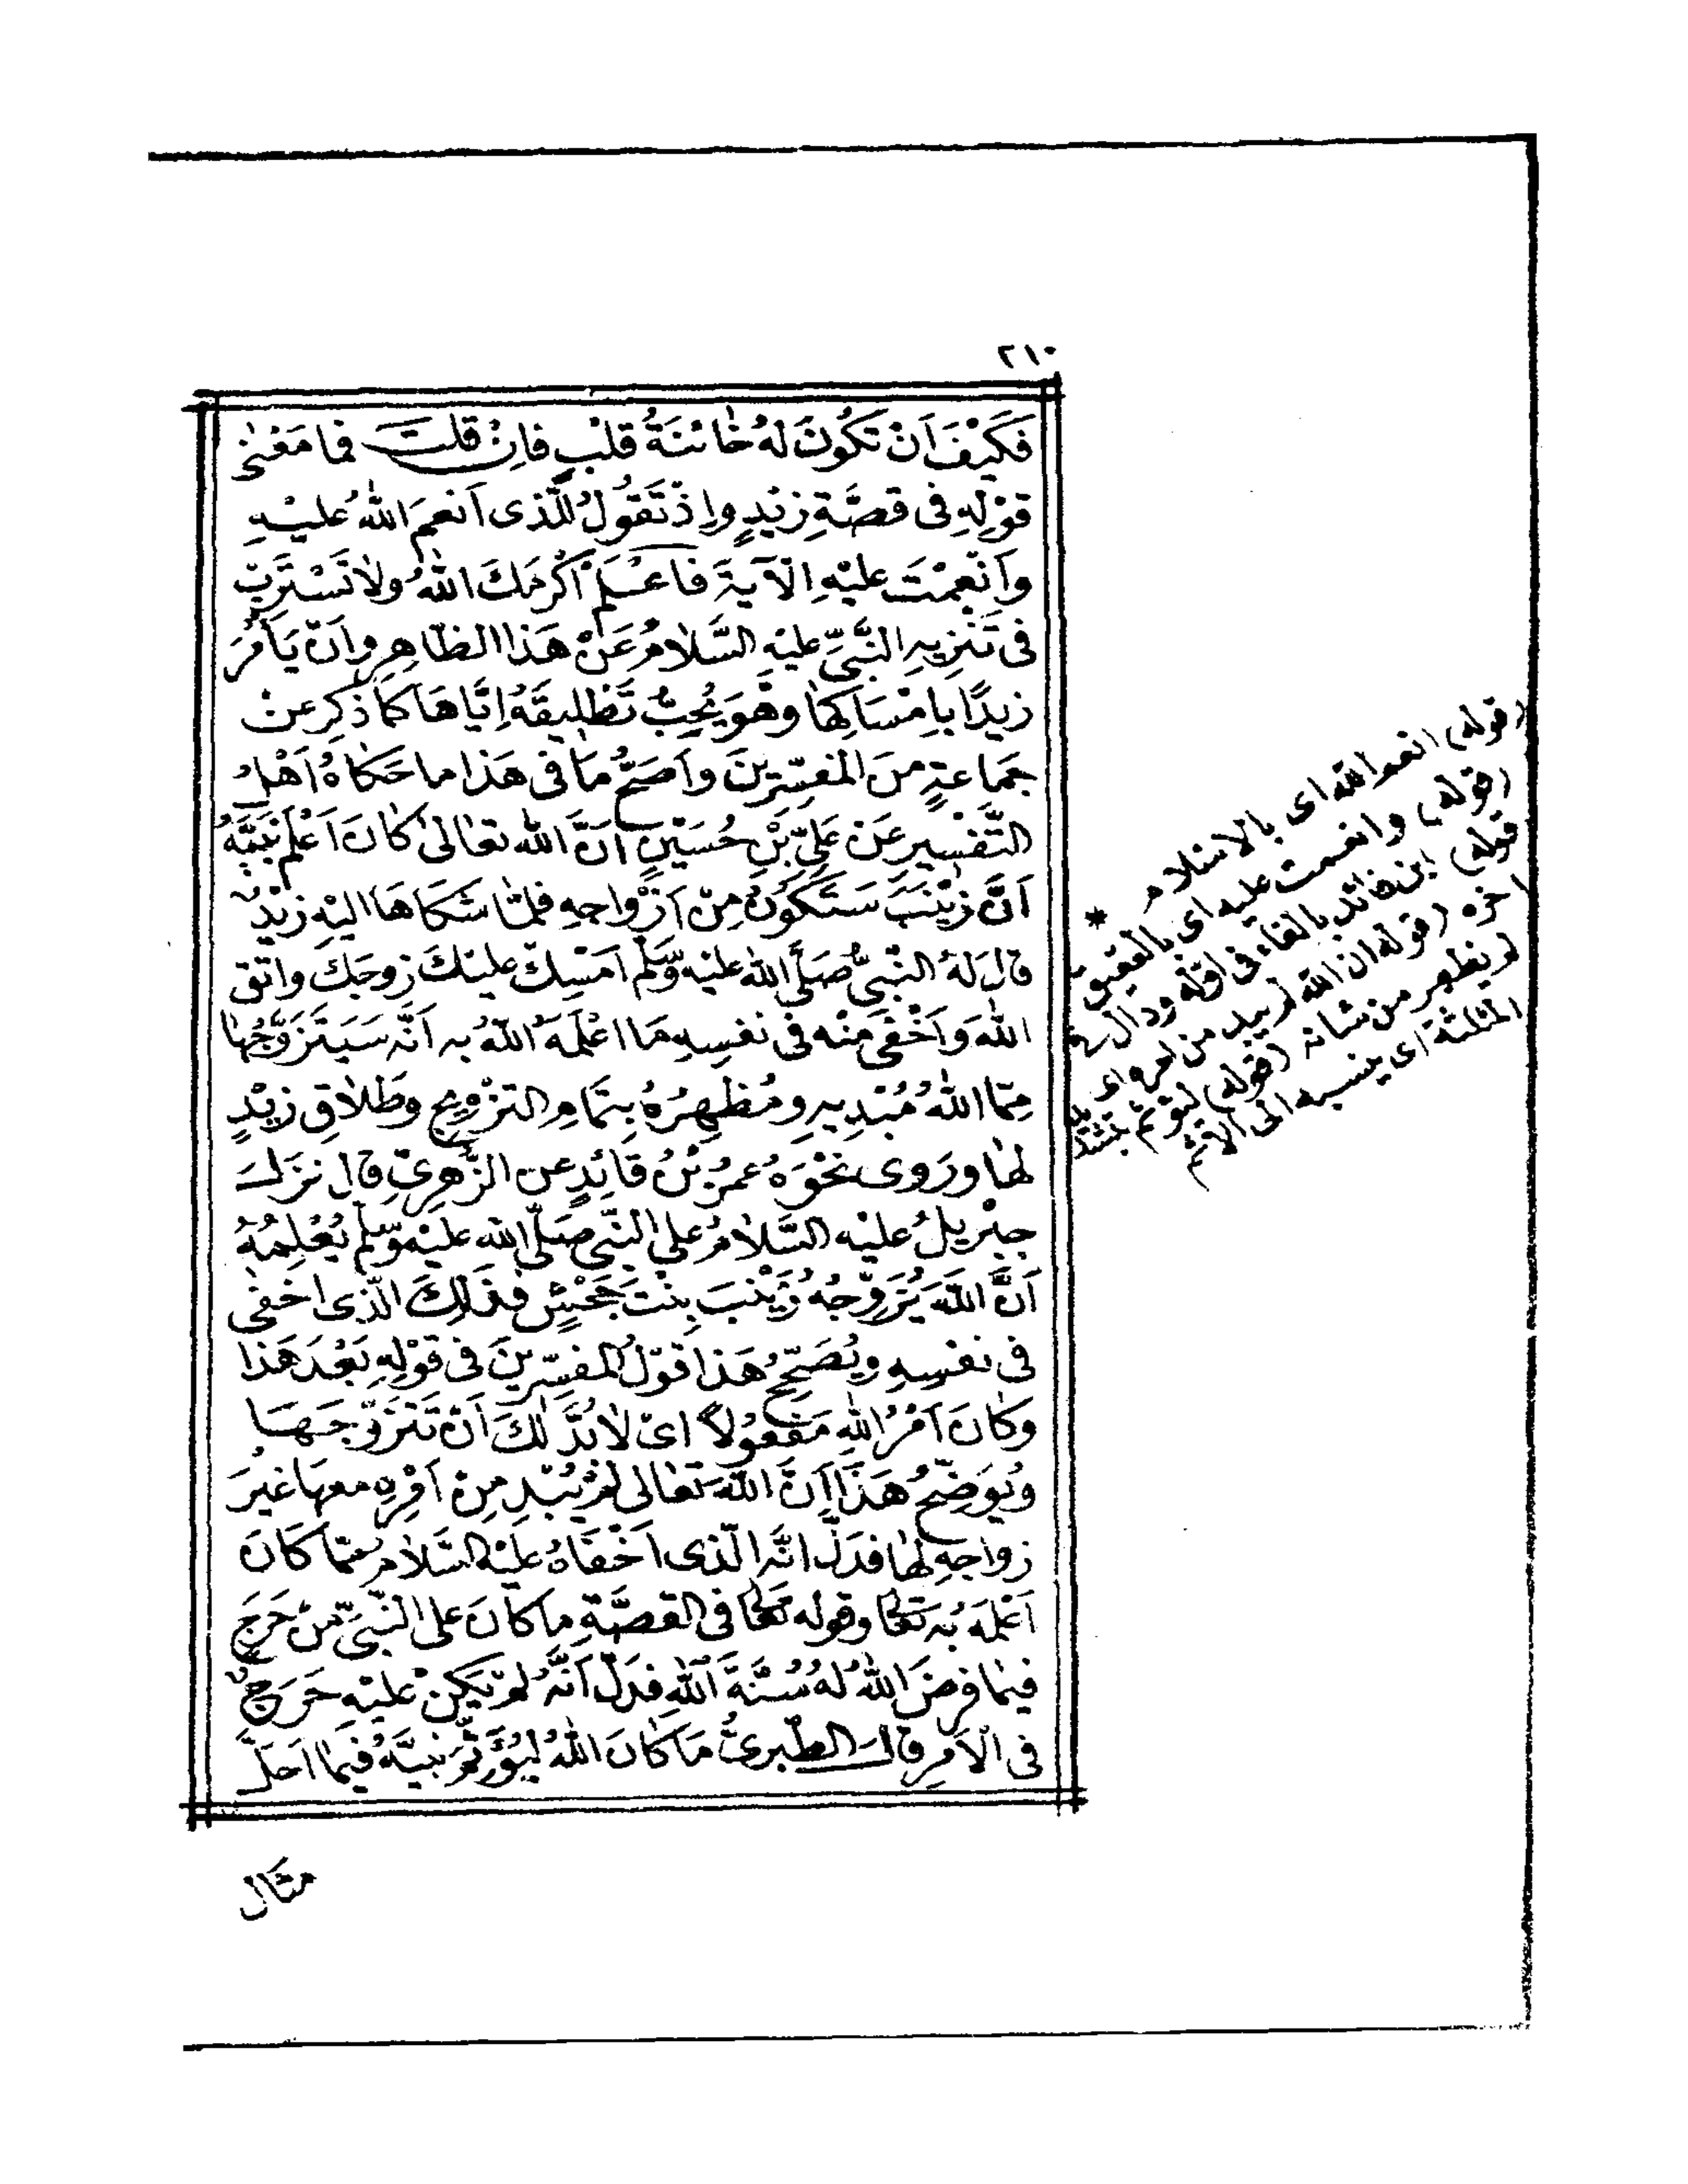 ٢١٠
فَكَيْفَ اَنْ تَكُونَ لَهُ خَائِنَةُ قَلْبٍ فَاِنْ قُلْتَ فما مَعْنٰى
قَوْلِهِ فى قِصَّةِ زَيْدٍ وَاِذْ تَقُولُ لِلَّذى اَنْعَمَ اللهُ عَلَيْهِ
وَاَنْعَمْتَ عَلَيْهِ الْآيَةَ فَاعْلَمْ اَكْرَمَكَ اللهُ وَلَا تَسْتَرِبْ
فى تَنْزِيهِ النَّبِىِّ عَلَيْهِ السَّلَامُ عَنْ هَذَا الظَّاهِرِ وَاَنْ يَأْمُرَ
زَيْدًا بِاِمْسَاكِهَا وَهُوَ يُحِبُّ تَطْلِيقَهُ اِيَّاهَا كَمَا ذُكِرَ عَنْ
جَمَاعَةٍ مِنَ الْمُفَسِّرِينَ وَاَصَحُّ مَا فى هَذَا مَا حَكَاهُ اَهْلُ
التَّفْسِيرِ عَنْ عَلِىِّ بْنِ حُسَيْنٍ اَنَّ اللهَ تَعَالَى كَانَ اَعْلَمَ نَبِيَّهُ
اَنَّ زَيْنَبَ سَتَكُونُ مِنْ اَزْوَاجِهِ فَلَمَّا شَكَاهَا اِلَيْهِ زَيْدٌ
قَالَ لَهُ النَّبِىُّ صَلَّى اللهُ عَلَيْهِ وَسَلَّمَ اَمْسِكْ عَلَيْكَ زَوْجَكَ وَاتَّقِ
اللهَ وَاَخْفَى مِنْهُ فى نَفْسِهِ مَا اَعْلَمَهُ اللهُ بِهِ اَنَّهُ سَيَتَزَوَّجُهَا
مِمَّا اللهُ مُبْدِيهِ وَمُظْهِرُهُ بِتَمَامِ التَّزْوِيجِ وَطَلَاقِ زَيْدٍ
لَهَا وَرَوَى نَحْوَهُ عَمْرُ بْنُ قَائِدٍ عَنِ الزُّهْرِىِّ قَالَ نَزَلَ
جِبْرِيلُ عَلَيْهِ السَّلَامُ عَلَى النَّبِىِّ صَلَّى اللهُ عَلَيْهِ وَسَلَّمَ يُعْلِمُهُ
اَنَّ اللهَ يُزَوِّجُهُ زَيْنَبَ بِنْتَ جَحْشٍ فَذَلِكَ الَّذى اَخْفَى
فى نَفْسِهِ وَيُصَحِّحُ هَذَا قَوْلُ الْمُفَسِّرِينَ فى قَوْلِهِ بَعْدَ هَذَا
وَكَانَ اَمْرُ اللهِ مَفْعُولًا اَىْ لَا بُدَّ لَكَ اَنْ تَتَزَوَّجَهَا
وَيُوَضِّحُ هَذَا اَنَّ اللهَ تَعَالَى لَمْ يُبْدِ مِنْ اَمْرِهِ مَعَهَا غَيْرَ
زَوَاجِهِ لَهَا فَدَلَّ اَنَّهُ الَّذى اَخْفَاهُ عَلَيْهِ السَّلَامُ مِمَّا كَانَ
اَعْلَمَهُ بِهِ تَعَالَى وَقَوْلُهُ تَعَالَى فى الْقِصَّةِ مَا كَانَ عَلَى النَّبِىِّ مِنْ حَرَجٍ
فِيمَا فَرَضَ اللهُ لَهُ سُنَّةَ اللهِ فَدَلَّ اَنَّهُ لَمْ يَكُنْ عَلَيْهِ حَرَجٌ
فى الْاَمْرِ قَالَ الطَّبَرِىُّ مَا كَانَ اللهُ لِيُؤَثِّمَ نَبِيَّهُ فِيمَا اَحَلَّ
مثال
(قوله) انعم الله اى بالاسلام *
(قوله) وانعمت عليه اى بالعتق
(قوله) ابن فائد بالفاء فى اوّله ودال
اخره (قوله ان الله لم يبد من امره اى
لم يظهر من شانه (قوله) ليؤثم بتشديد
المثلثة اى ينسبه الى الاثم